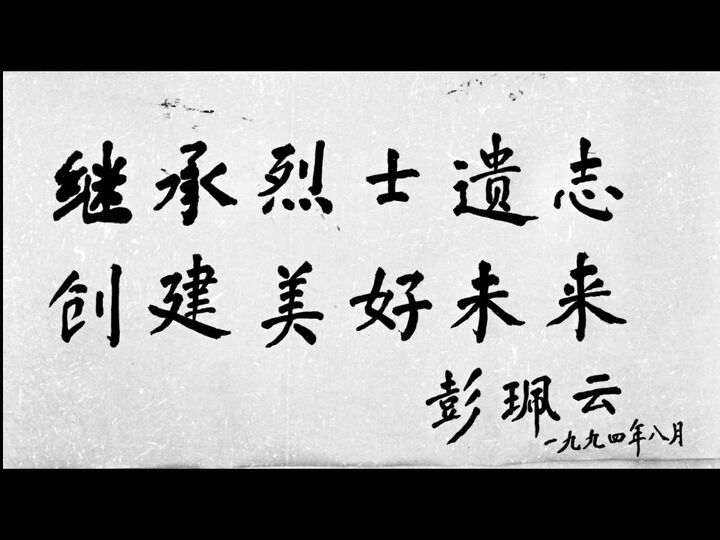 继承烈士遗志
创建美好未来
彭珮云
一九九四年八月